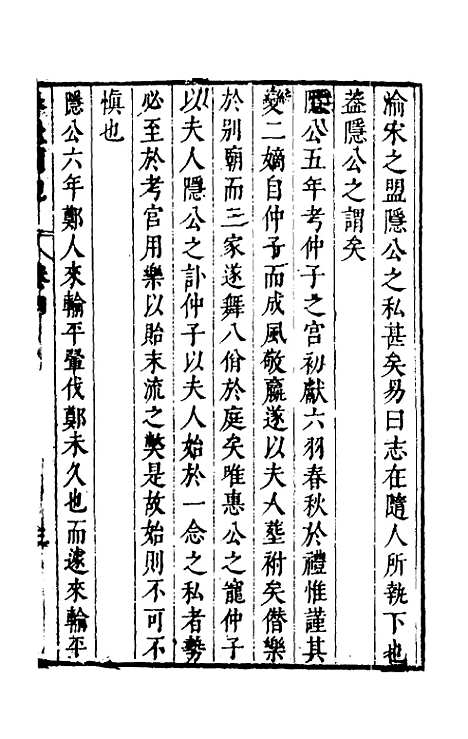 渝宋之盟隱公之私甚矣易曰志在隨人所執下也
葢隱公之謂矣
隱公五年考仲子之宫初獻六羽春秋於禮惟謹其
變二嫡自仲子而成風敬嬴遂以夫人塟祔矣僣樂
於别廟而三家遂舞八佾於庭矣唯惠公之寵仲子
以夫人隱公之訃仲子以夫人始於一念之私者勢
必至於考宫用樂以貽末流之獘是故始則不可不
愼也
隱公六年鄭人來輸平翬伐鄭未久也而遽來輸平